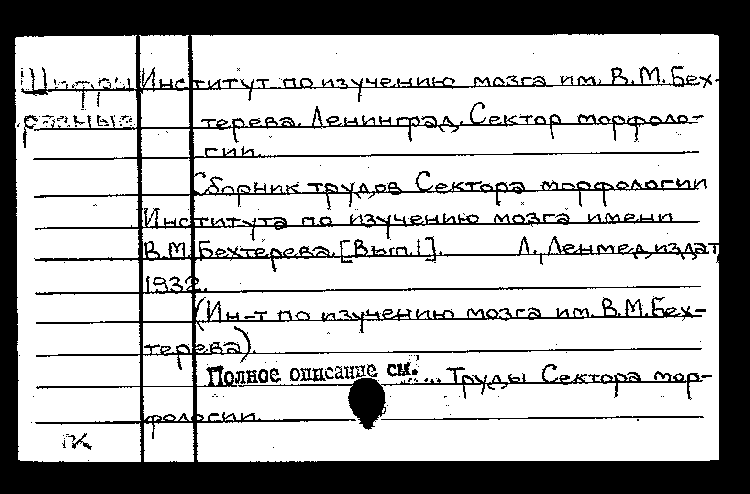 Шифры Институт по изучению мозга им. В.М.Бех-
разные терева. Ленинград. Сектор морфоло-
гии.
Сборник трудов Сектора морфологии
Института по изучению мозга имени
В.М.Бехтерева. [Вып.1]. Л., Ленмедиздат,
1932.
(Ин-т по изучению мозга им. В.М.Бех-
терева).
Полное описание см. ... Труды Сектора мор-
фологии.
ПК